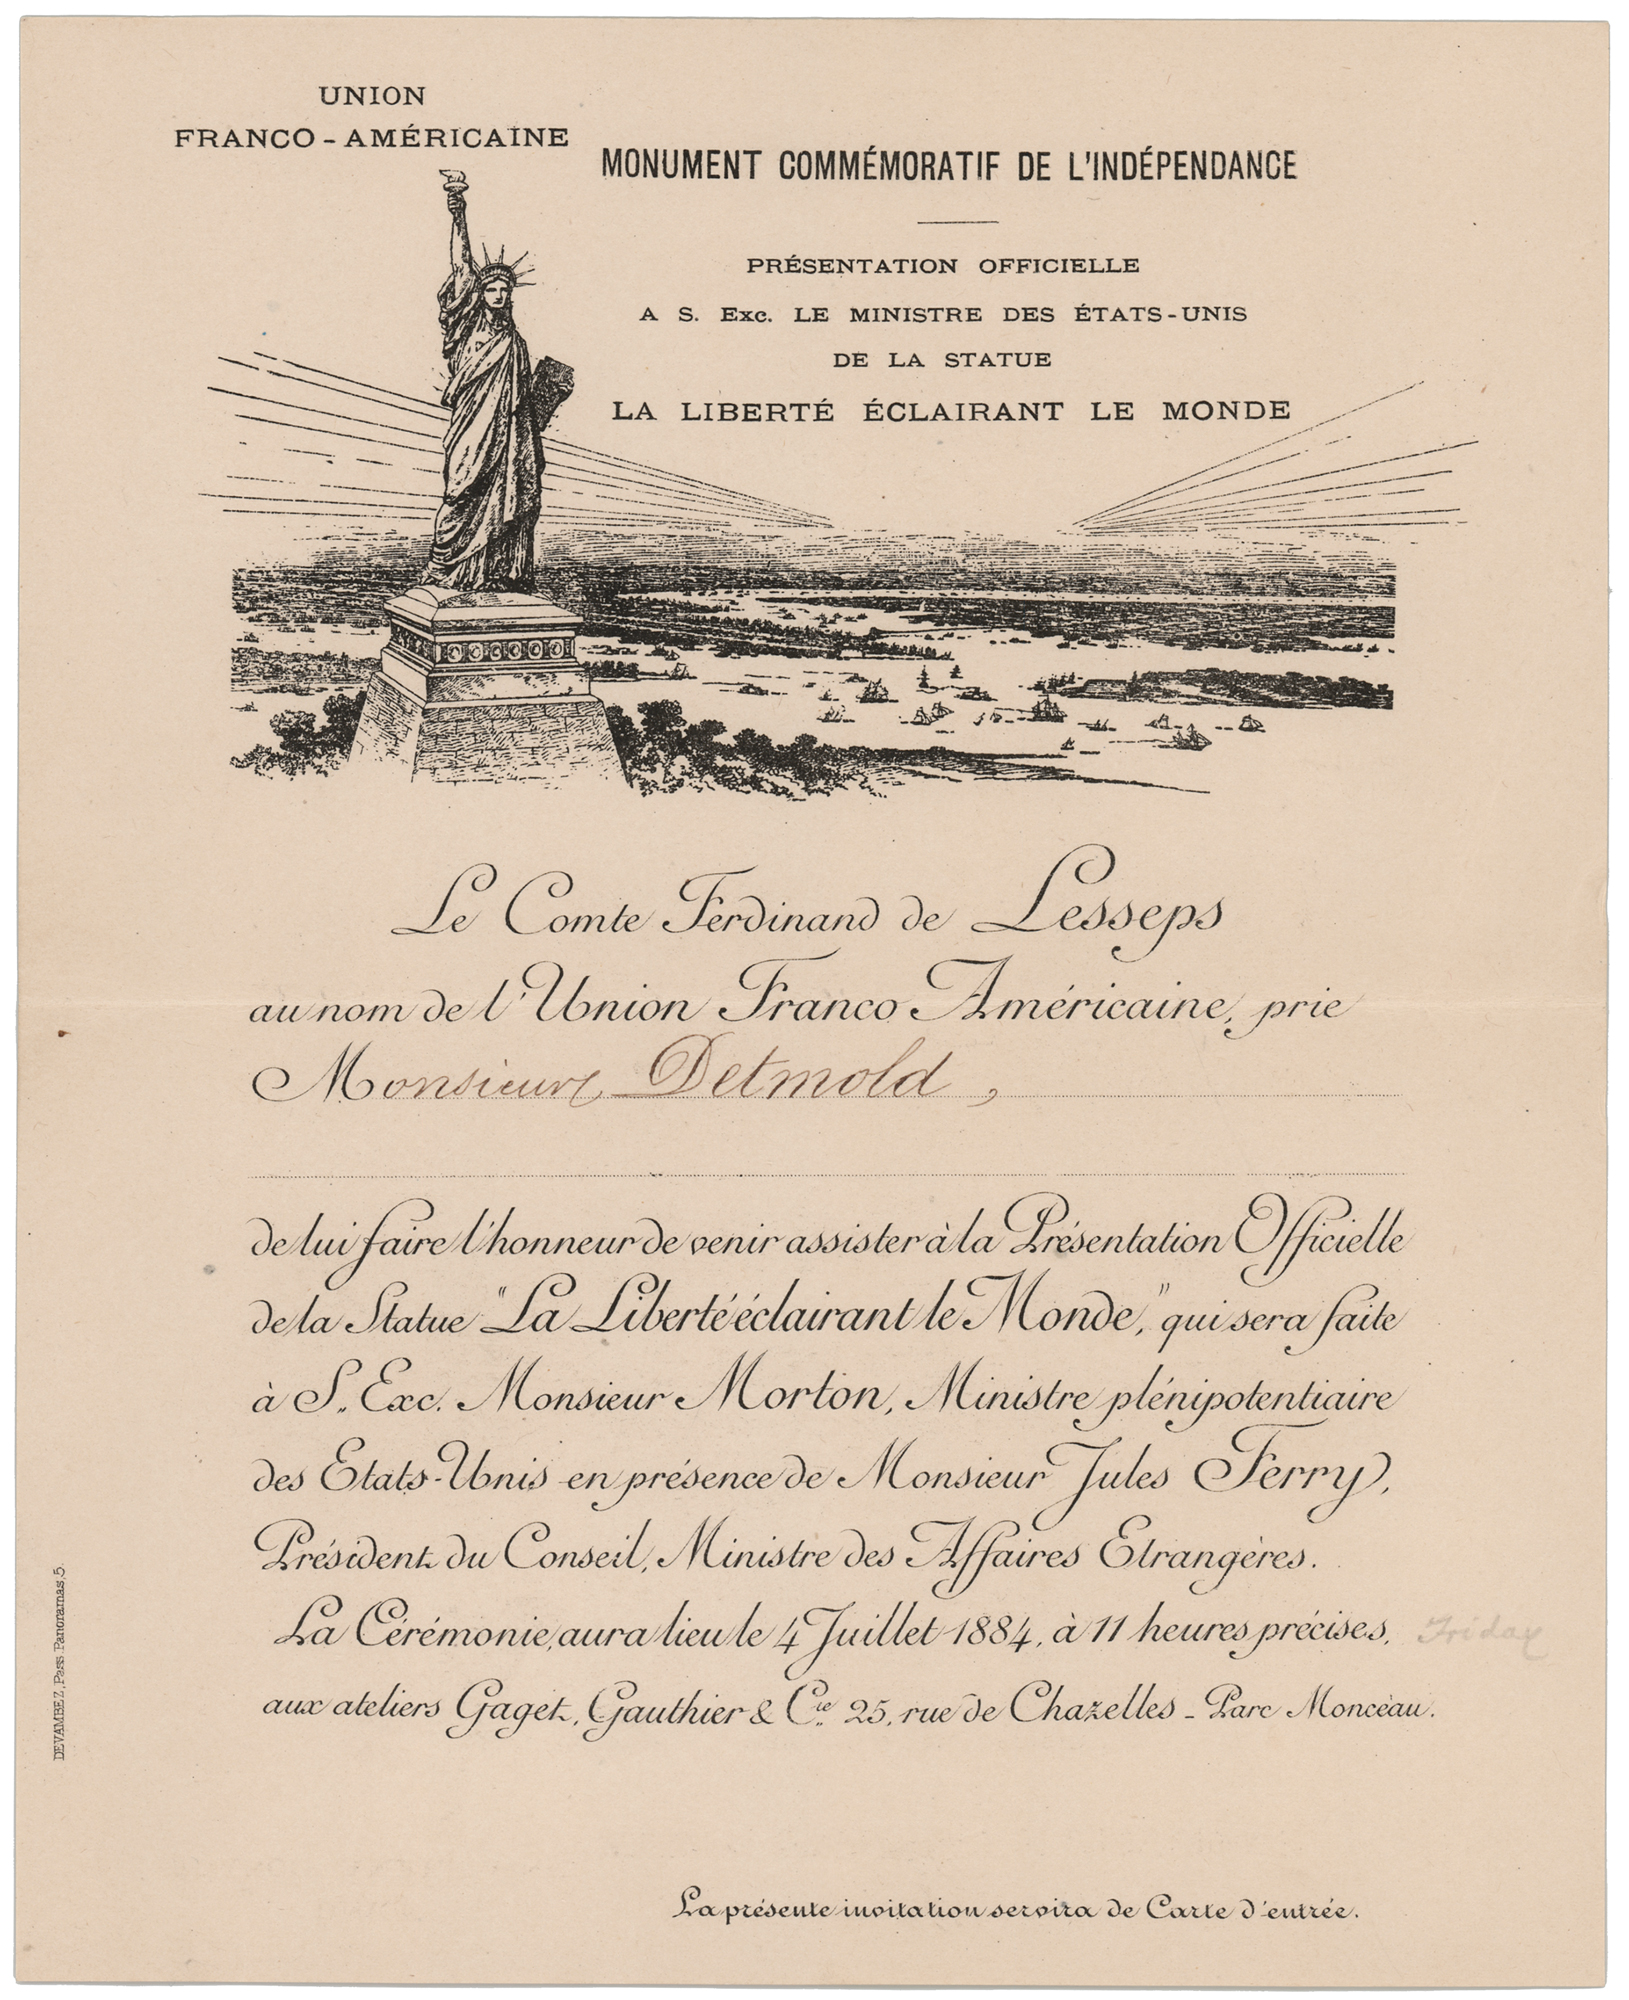 UNION
FRANCO-AMÉRICAINE
MONUMENT COMMÉMORATIF DE L'INDÉPENDANCE
PRÉSENTATION OFFICIELLE
A S. Exc. LE MINISTRE DES ÉTATS-UNIS
DE LA STATUE
LA LIBERTÉ ÉCLAIRANT LE MONDE
Le Comte Ferdinand de Lesseps
au nom de l'Union Franco Américaine, prie
Monsieur Detmold,
de lui faire l'honneur de venir assister à la Présentation Officielle
de la Statue "La Liberté éclairant le Monde," qui sera faite
à S. Exc. Monsieur Morton, Ministre plénipotentiaire
des Etats-Unis en présence de Monsieur Jules Ferry,
Président du Conseil, Ministre des Affaires Etrangères.
La Cérémonie, aura lieu le 4 Juillet 1884, à 11 heures précises, Friday
aux ateliers Gaget, Gauthier & Cie 25, rue de Chazelles - Parc Monceau.
La présente invitation servira de Carte d'entrée.
DEVAMBEZ, Pass. Panoramas, 5